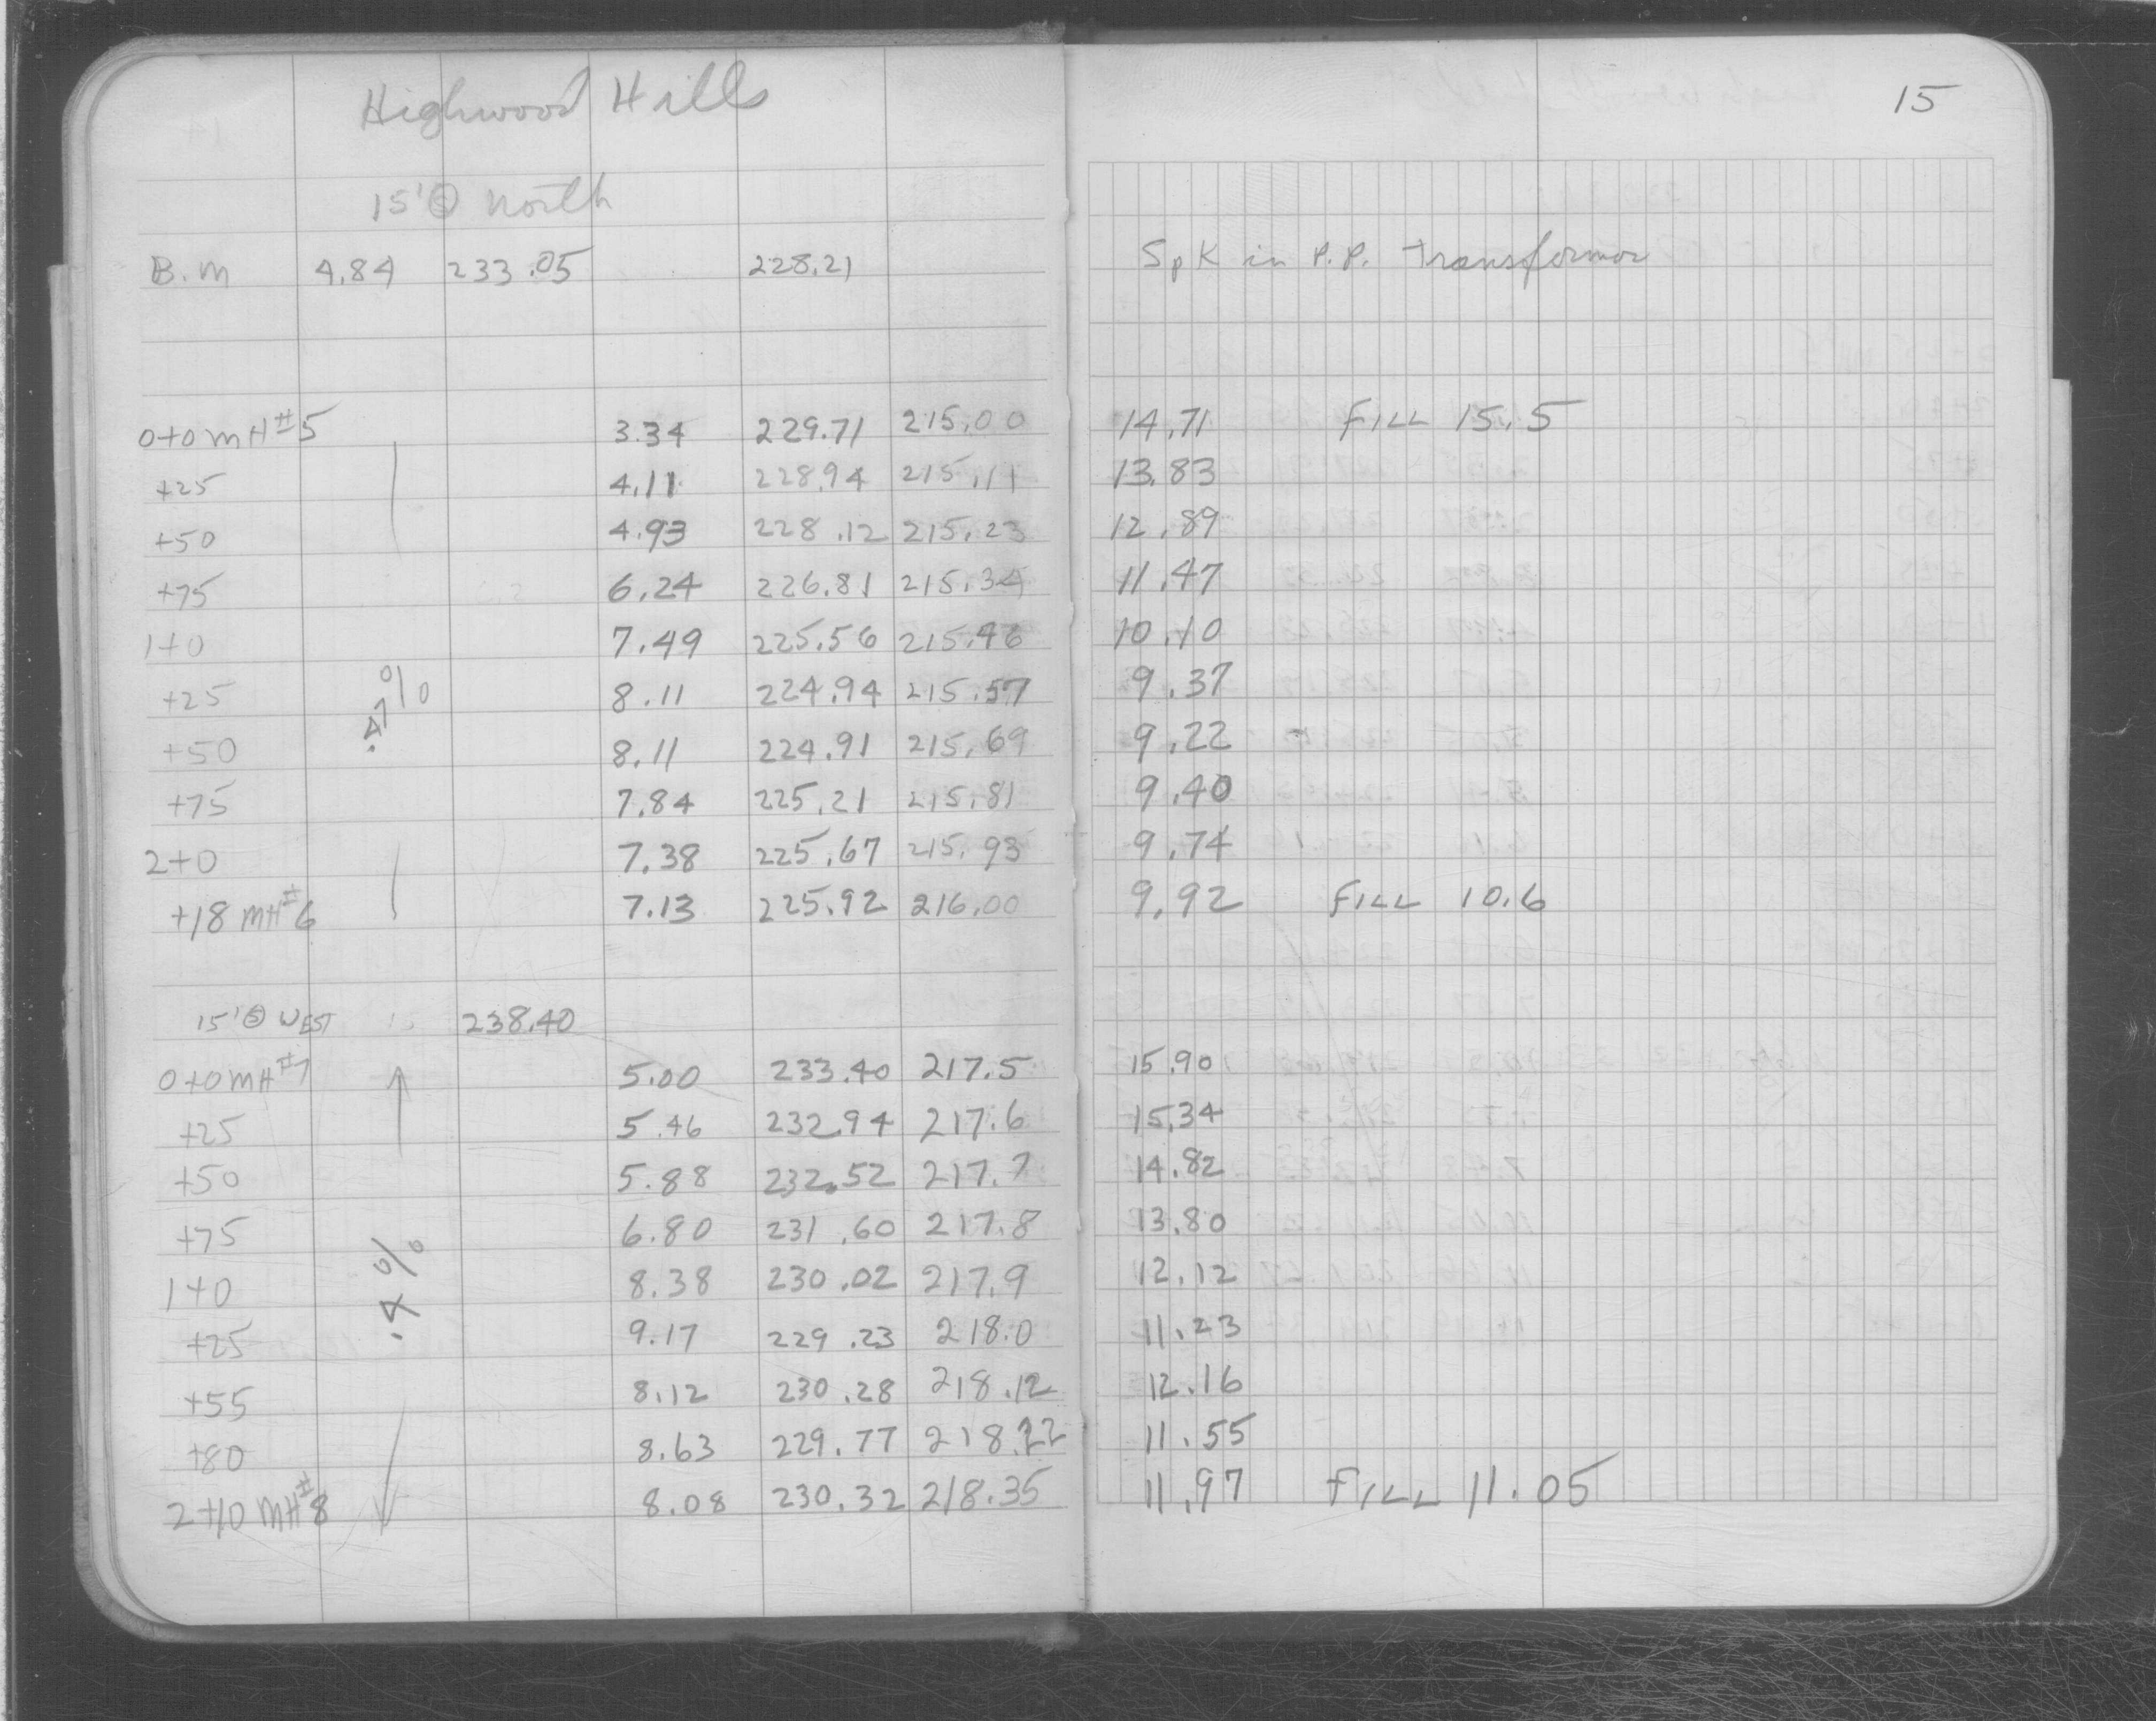 Highwood Hills
15
15' Ⓢ North
B.M 4.84 233.05 228.21 SpK in P.P. Transformor
0+0 MH#5 3.34 229.71 215.00 14.71 FILL 15.5
+25 4.11 228.94 215.11 13.83
+50 4.93 228.12 215.23 12.89
+75 6.24 226.81 215.34 11.47
1+0 7.49 225.56 215.46 10.10
+25 .47% 8.11 224.94 215.57 9.37
+50 8.11 224.91 215.69 9.22
+75 7.84 225.21 215.81 9.40
2+0 7.38 225.67 215.93 9.74
+18 MH#6 7.13 225.92 216.00 9.92 FILL 10.6
15' Ⓢ WEST 238.40
0+0 MH#7 5.00 233.40 217.5 15.90
+25 5.46 232.94 217.6 15.34
+50 5.88 232.52 217.7 14.82
+75 6.80 231.60 217.8 13.80
1+0 .4% 8.38 230.02 217.9 12.12
+25 9.17 229.23 218.0 11.23
+55 8.12 230.28 218.12 12.16
+80 8.63 229.77 218.22 11.55
2+10 MH#8 8.08 230.32 218.35 11.97 FILL 11.05